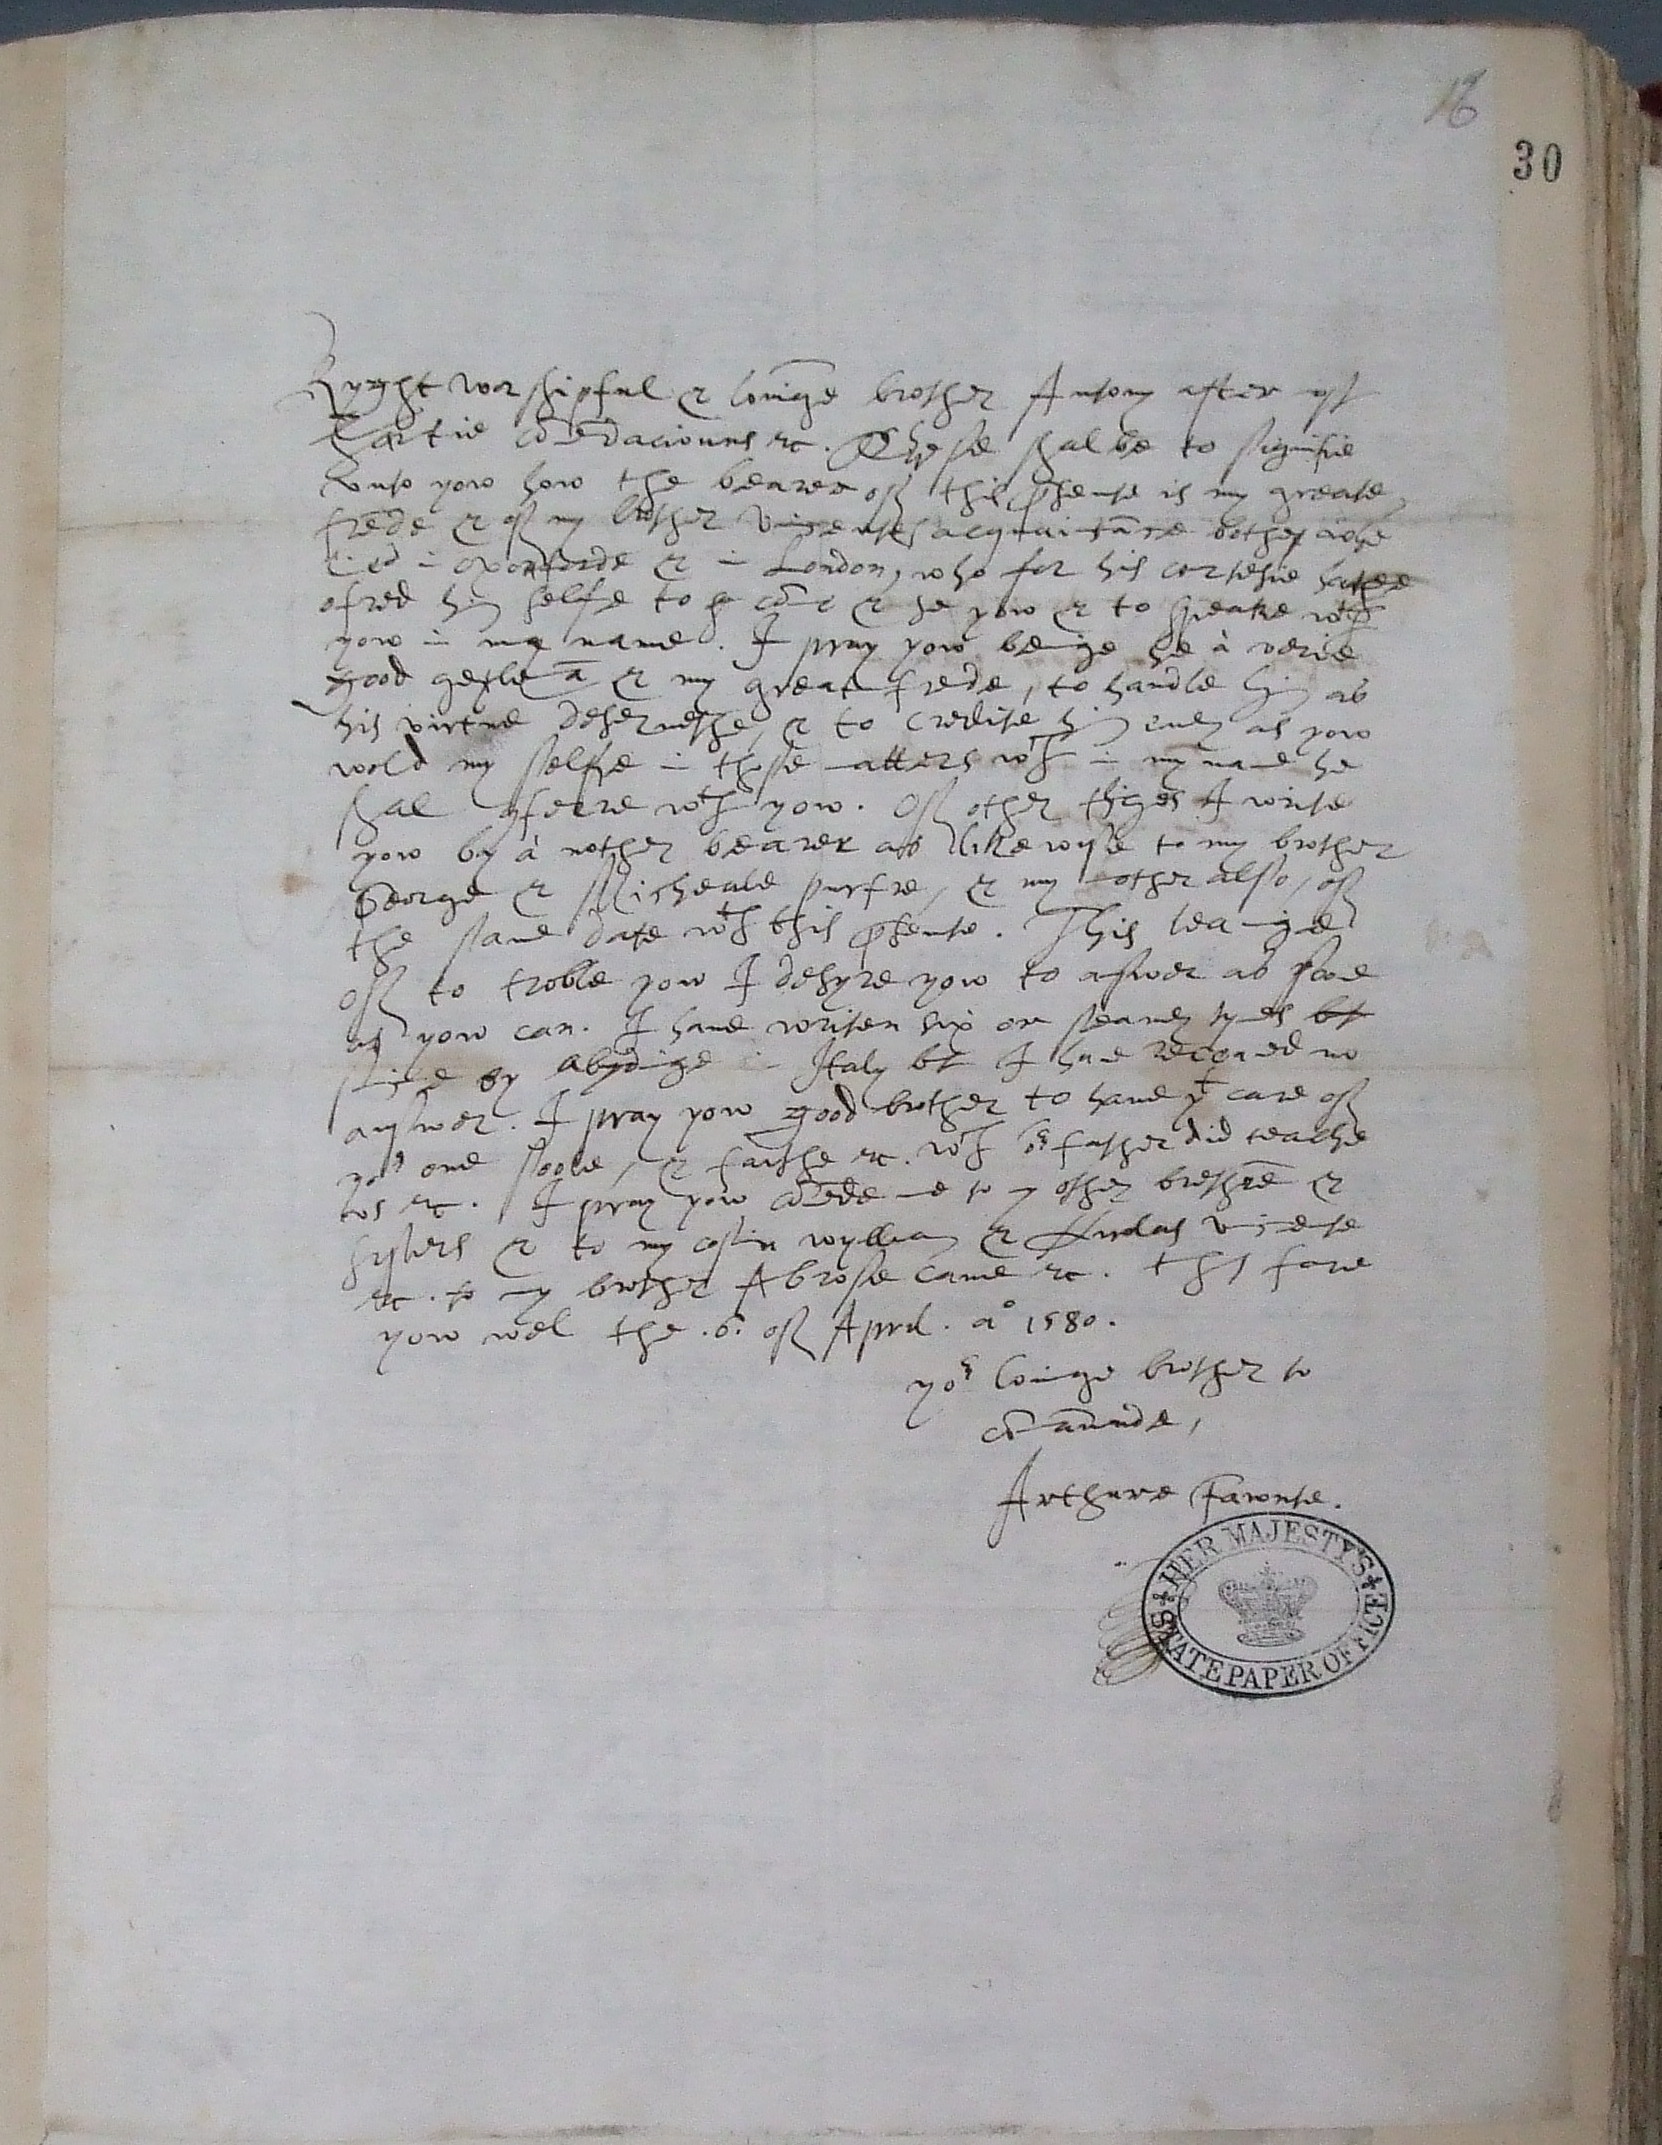 16
30
Ryght worshipful & louige brother Antony after most
hartie cōmēdaciouns &c. These shal be to signifie
vnto yow how the bearer off this psente is my greate
frēde & off my brother vincentes acquaitāce bothe
i oxonforde & i London, who for his cortesie hathe
ofred hī selfe to cōe & se yow & to speake wth
yow in my name. I pray yow beige he à verie
good getlemā & my great frede, to handle hī as
his virtue deseruethe, & to credite hī euen as yow
wold my selfe in those matters wch in my name he
shal cōferre wth yow. Off other thiges I write
yow by à nother bearer as likewyse to my brother
George & Micheale purfre, & my mother also, off
the same date wth this psente. This leauige
off to troble yow I desyre yow to answer as sone
as yow can. I haue writen six or seauen tymes bt
since my abydige i Italy bt I haue receaued no
answer. I pray yow good brother to haue yt care off
yor one soole, & faithe &c. wch or father did teache
vs &c. I pray yow cōmēde me to my other brethrē &
systers & to my cosin wylliam & vincente
&c. to my brother Abrose caue &c. Thus fare
yow wel the .6. off April. ao 1580.
yor louige brother to
cōmaunde,
Arthure Fawnte.
HER MAJESTY'S
STATE PAPER OFFICE